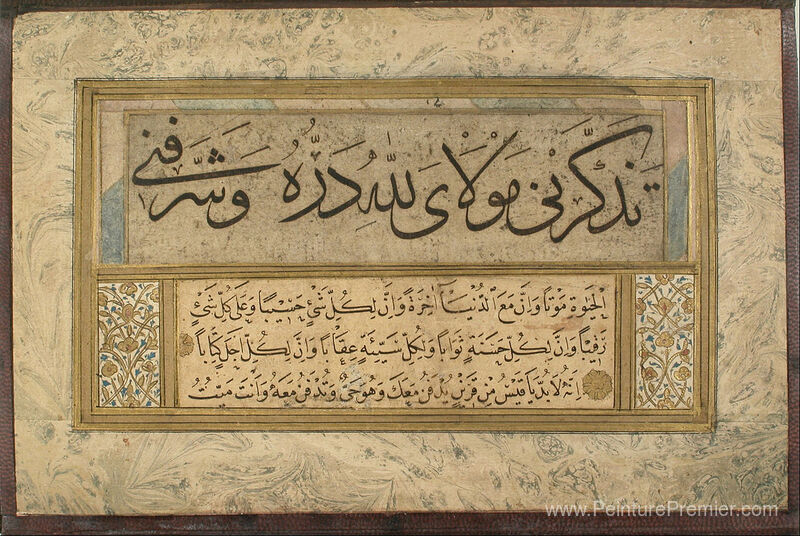 تذكرني مولاي لله دره وشرفني
الحيوة موتا وان مع الدنيا آخرة وان لكل شئ حسيبا وعلى كل شئ
رقيبا وان لكل حسنة ثوابا ولكل سيئة عقابا وان لكل اجل كتابا
انه لا بد يا قيس من قرين يدفن معك وهو حي وتدفن معه وانت ميت
www.PeinturePremier.com